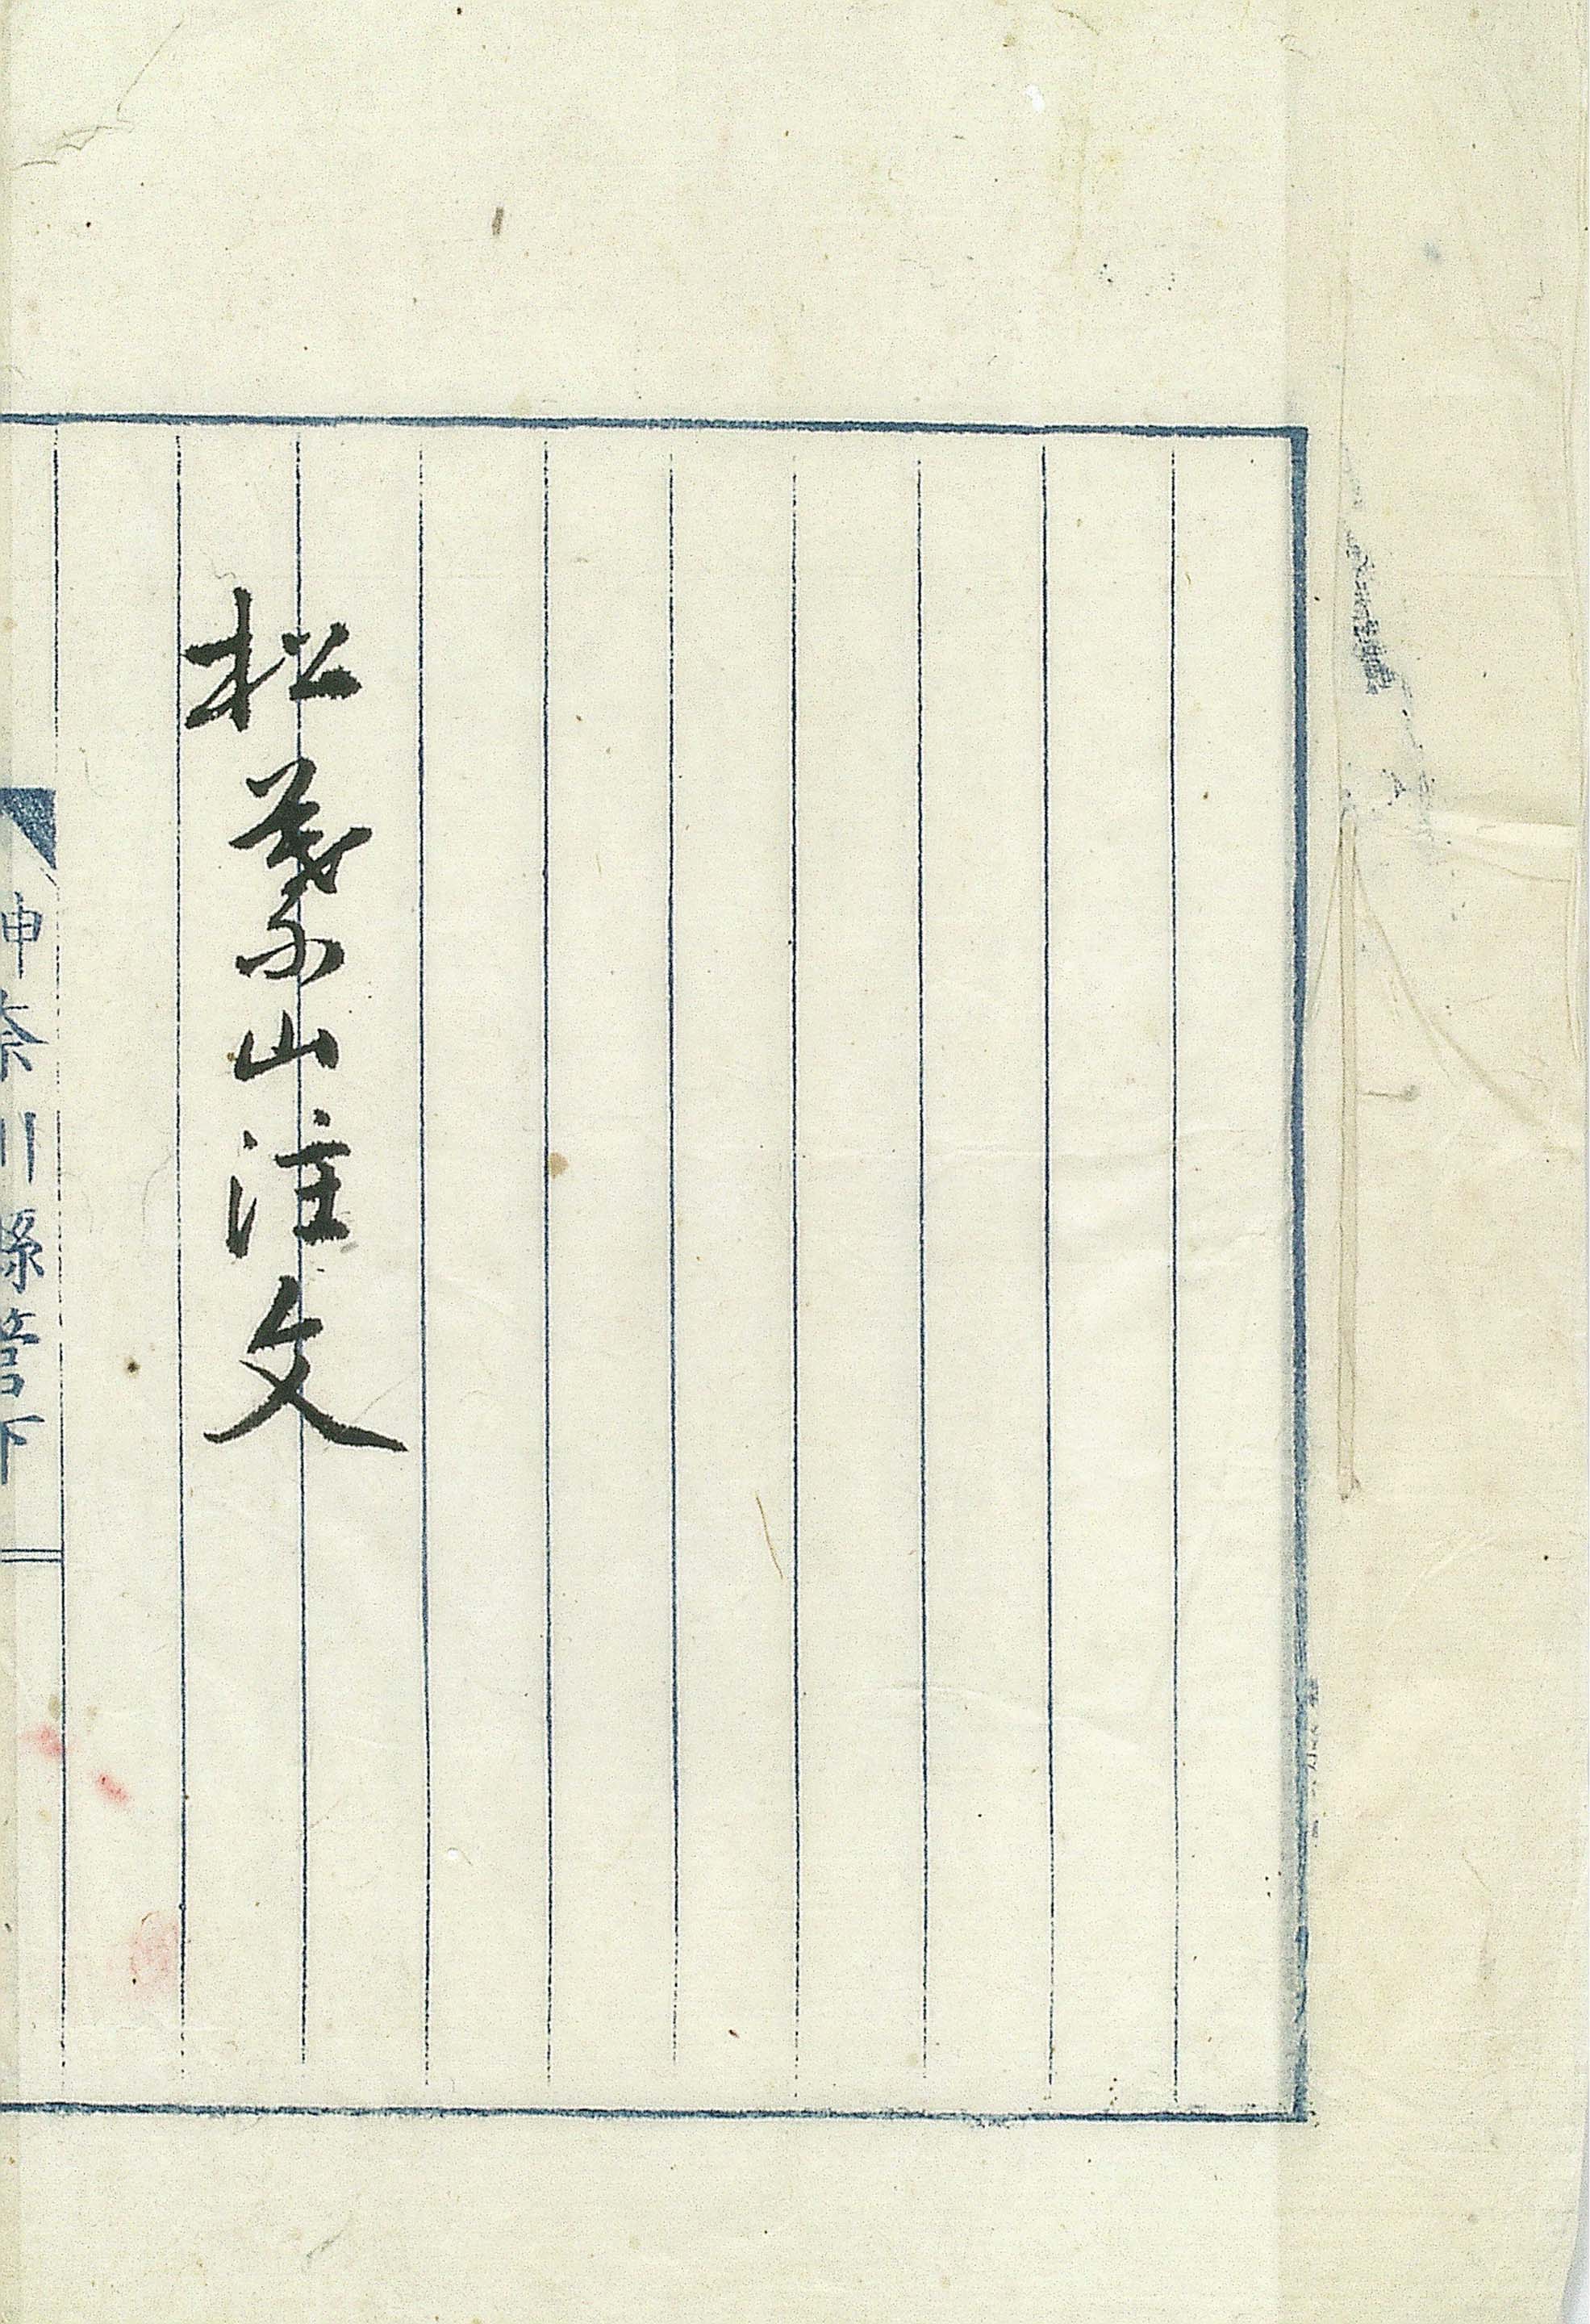 松葉山注文
神奈川縣管下